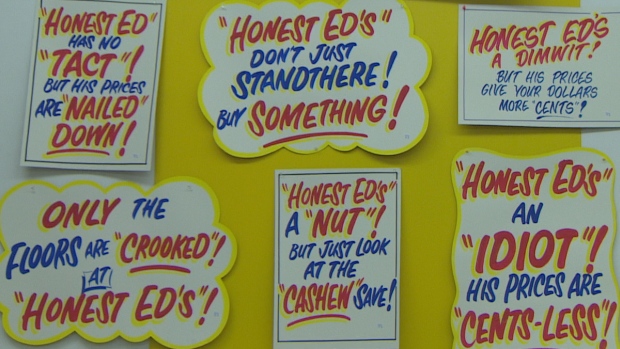 "HONEST ED'S"
HAS NO
"TACT"!
BUT HIS PRICES
ARE "NAILED"
DOWN!
"HONEST ED'S"
DON'T JUST
STANDTHERE!
BUY SOMETHING!
HONEST ED'S
A DIMWIT!
BUT HIS PRICES
GIVE YOUR DOLLARS
MORE "CENTS"!
ONLY THE
FLOORS ARE "CROOKED"!
AT
"HONEST ED'S"!
"HONEST ED'S"
A "NUT"!
BUT JUST LOOK
AT THE
"CASHEW" SAVE!
"HONEST ED'S"
AN
"IDIOT"!
HIS PRICES ARE
"CENTS-LESS"!